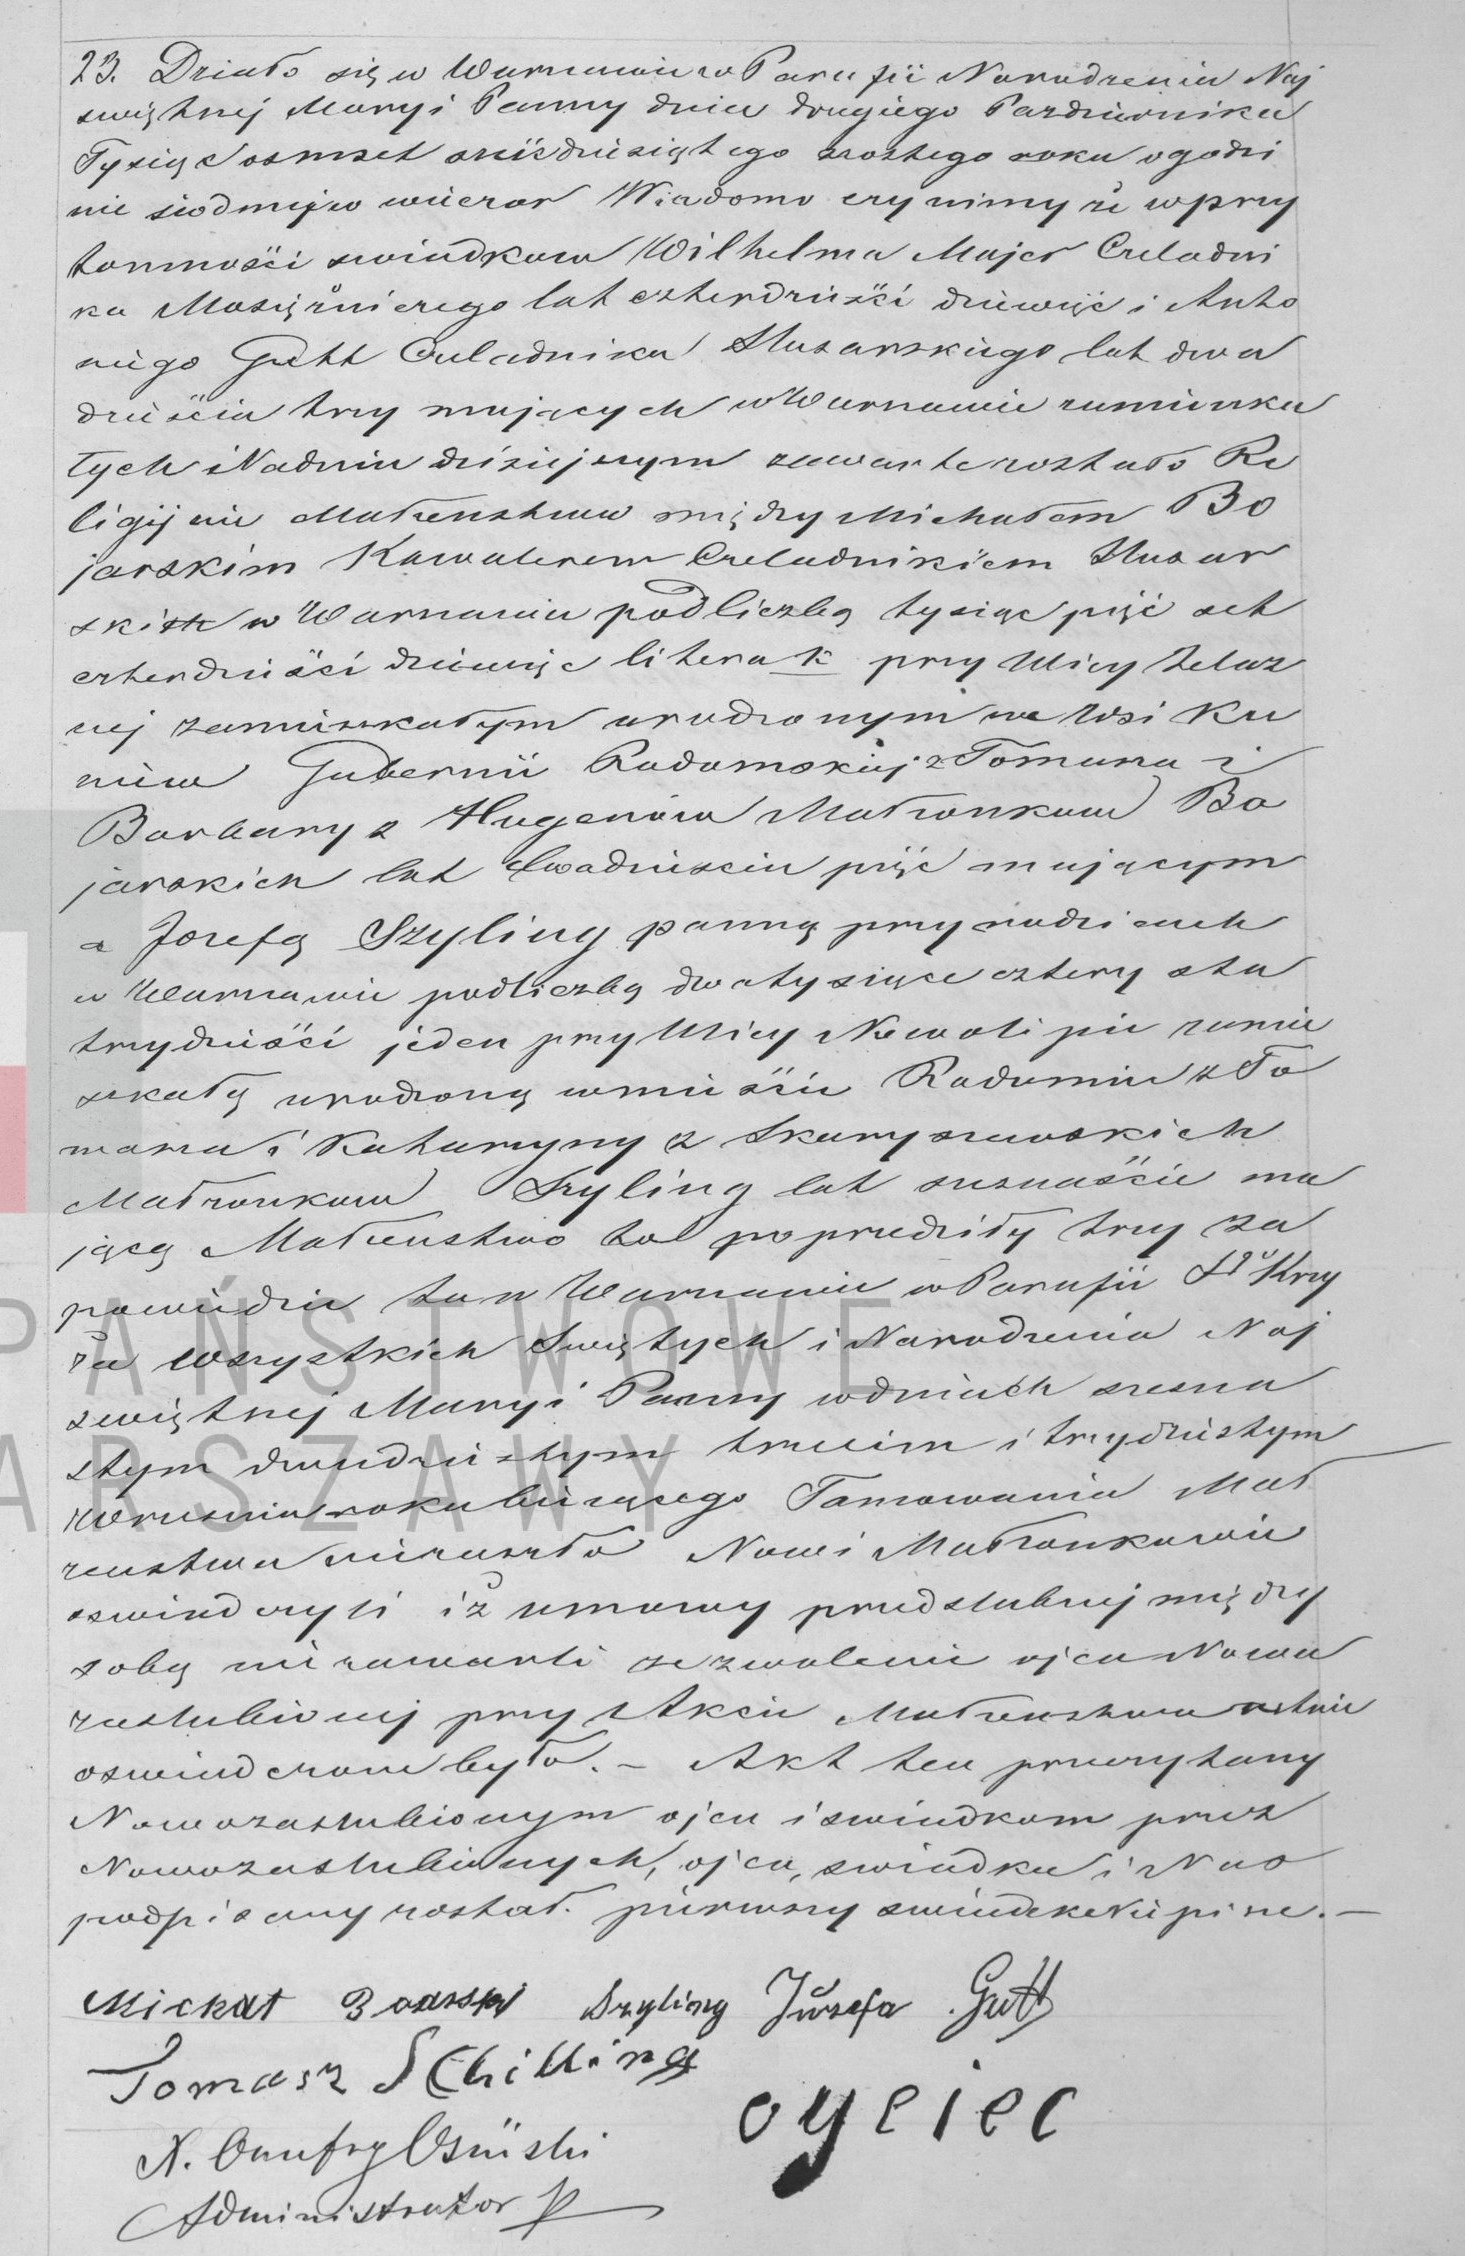 23. Działo się w Warszawie w Parafii Narodzenia Naj
swiętszej Maryi Panny dnia drugiego Pazdziernika
Tysiąc osmset sześćdziesiątego szostego roku o godzi
nie siodmej w wieczor Wiadomo czynimy że w przy
tomności swiadkow Wilhelma Majer Czeladni
ka Mosiężniczego lat czterdzieści dziewięć i Anto
niego Gutt Czeladnika Slusarskiego lat dwa
dzieścia trzy mających w Warszawie zamieszka
łych Na dniu dzisiejszym zawarte zostało Re
ligijnie Małżenstwo między Michałem Bo
jarskim Kawalerem Czeladnikiem Slusar
skim w Warszawie pod liczbą tysiąc pięć set
czterdzieści dziewięć litera K przy Ulicy Zelaz
nej zamieszkałym urodzonym we Wsi Ku
niew Gubernii Radomskiej z Tomasza i
Barbary z Hugenow Małżonkow Bo
jarskich lat dwadziescia pięć mającym
a Jozefą Szyling panną przy rodzicach
w Warszawie pod liczbą dwa tysiące cztery sta
trzydzieści jeden przy Ulicy Nowolipie zamie
szkałą urodzoną w mieście Radomiu z To
masza i Katarzyny z Skaryszewskich
Małżonkow Szyling lat szesnaście ma
jącą Małżenstwo to poprzedziły trzy za
powiedzie tu w Warszawie w Parafii Sgo Krzy
ża Wszystkich Swiętych i Narodzenia Naj
swiętszej Maryi Panny w dniach szesna
stym dwudziestym trzecim i trzydziestym
Wrzesnia roku bieżącego Tamowania Mał
zenstwa nie zaszło Nowi Małżonkowie
oswiadczyli iż umowy przedslubnej między
sobą nie zawarli zezwolenie ojca Nowo
zaslubionej przy Akcie Małżenstwa ustnie
oswiadczone było. – Akt ten przeczytany
Nowozaslubionym ojcu i swiadkom przez
Nowozaslubionych, ojca, swiadka i Nas
podpisany został. pierwszy swiadek Niepisze. –
Michał Boarski Szyling Józefa Gutt
Tomasz Schilling
oyciec
X. Onufry Osiński
Administrator P